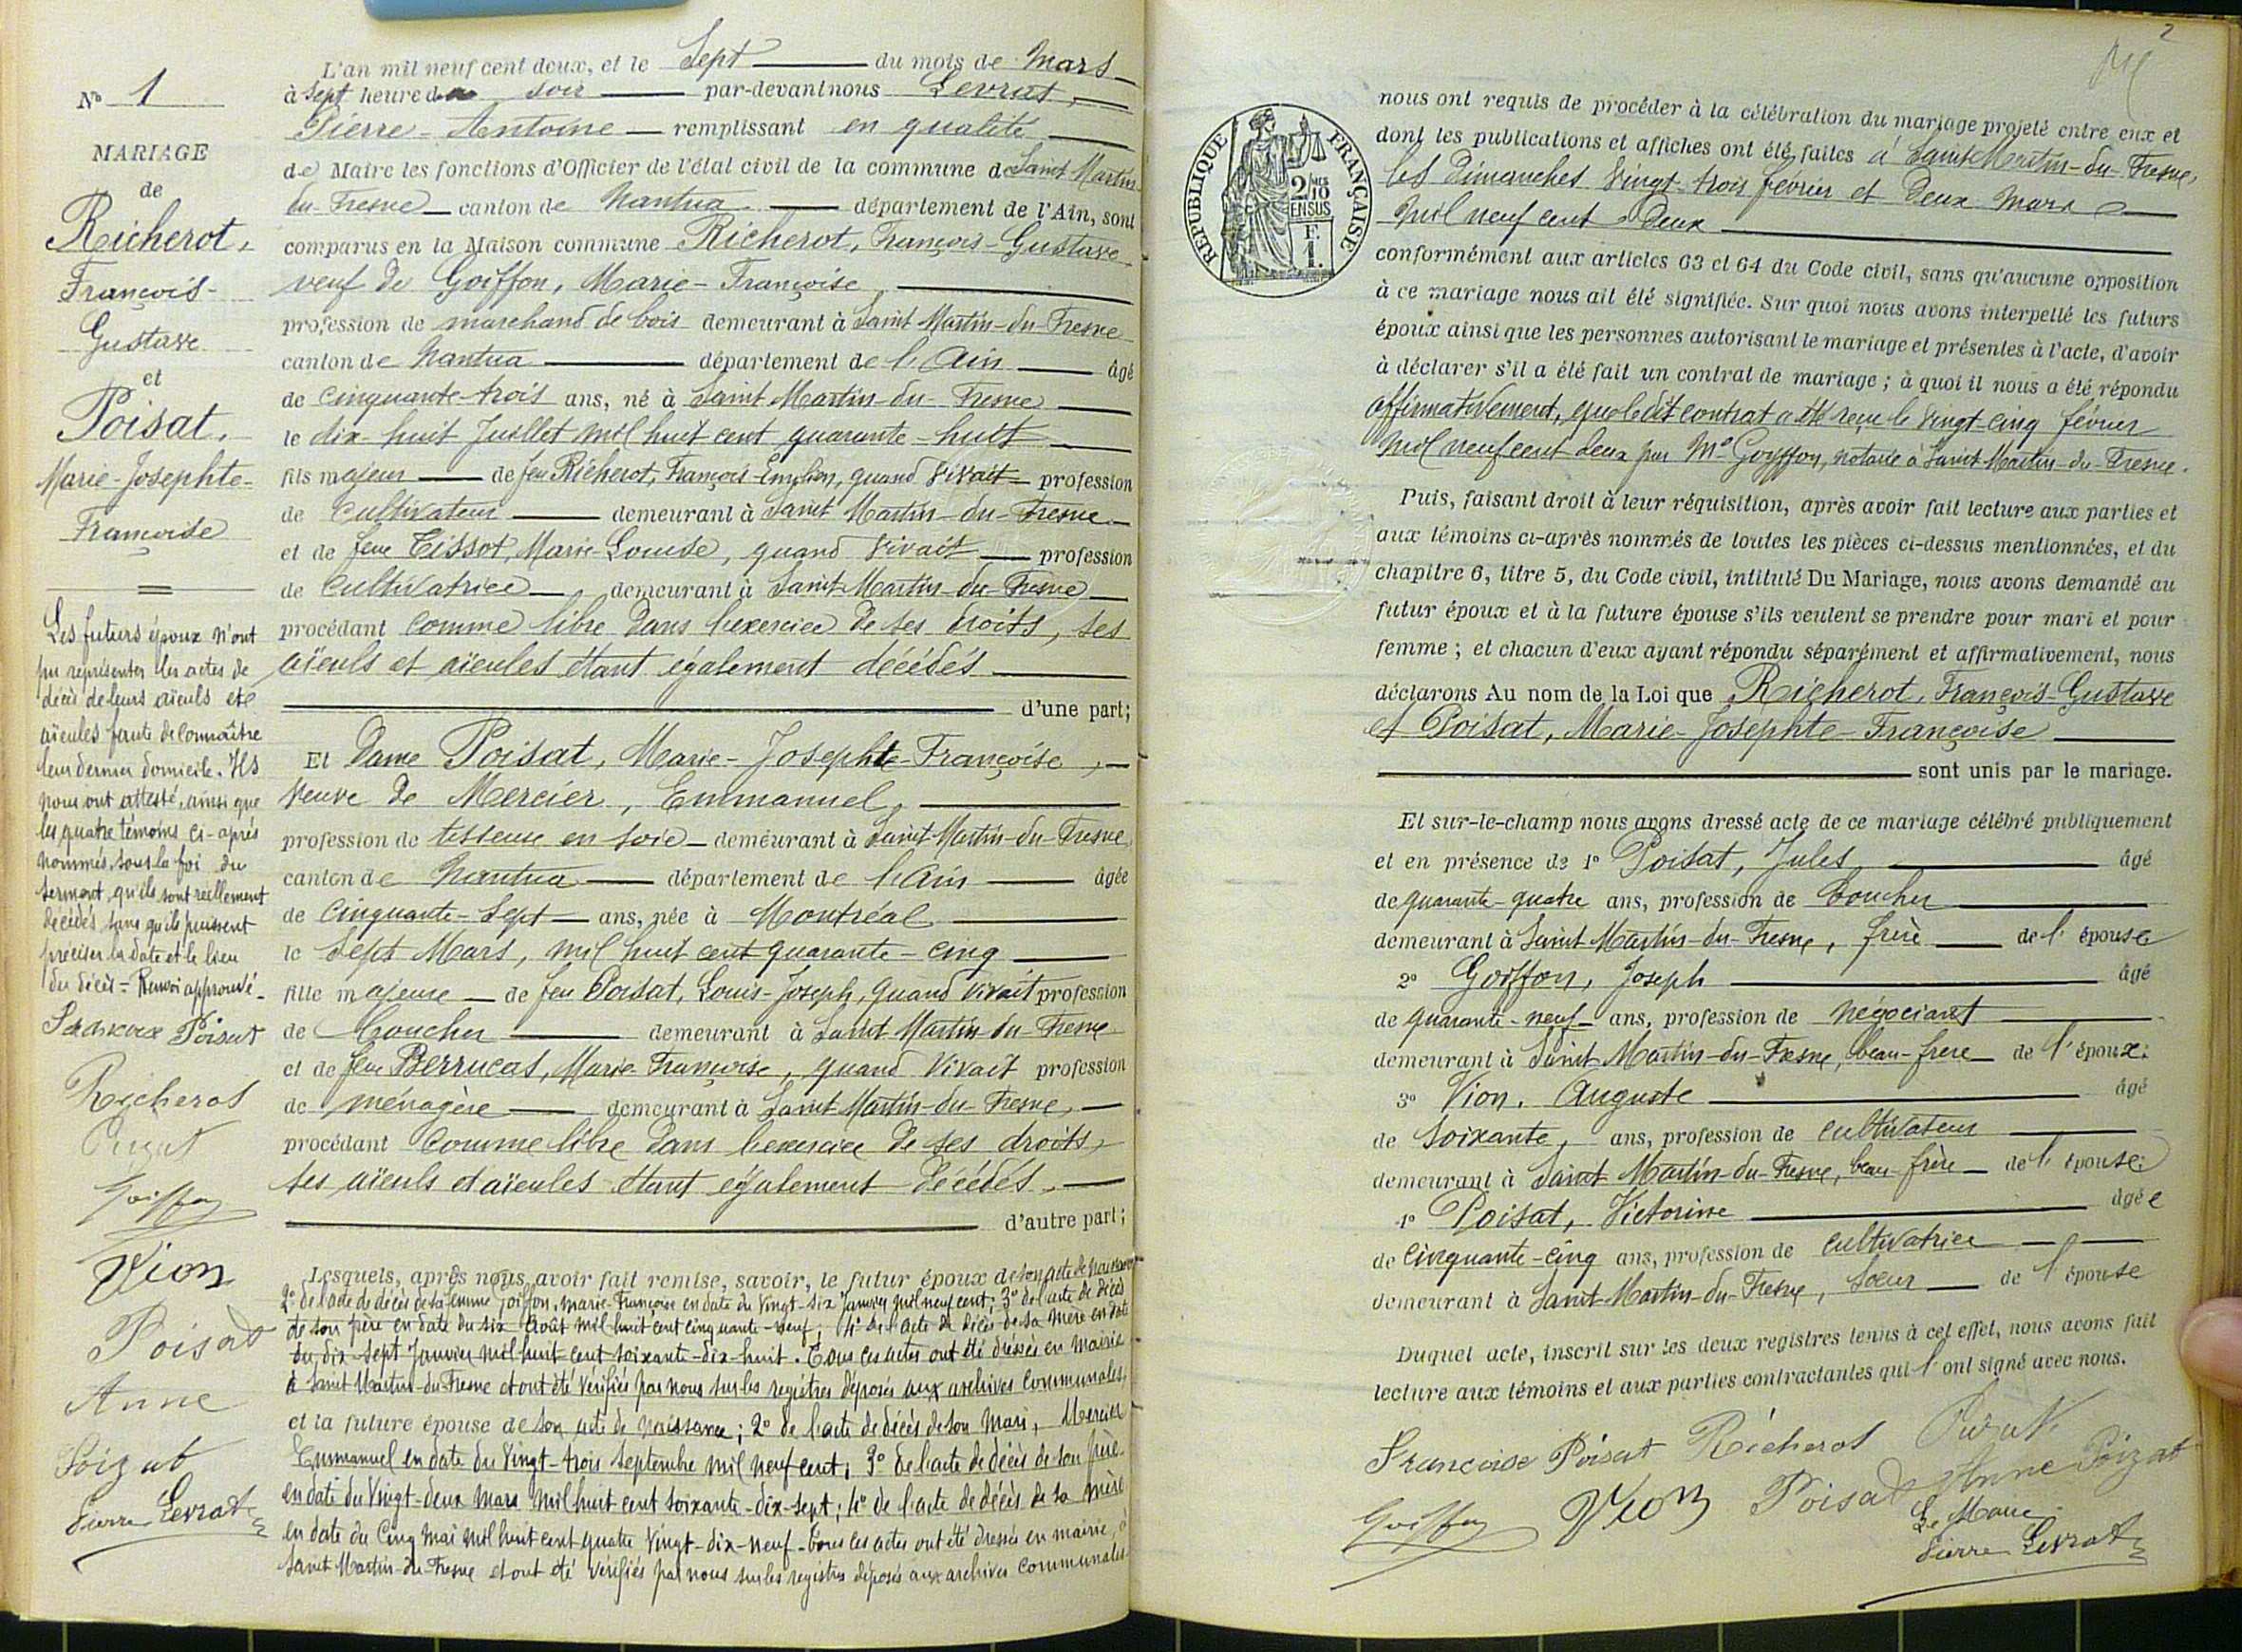 N° 1
MARIAGE
de
Richerot,
François-
Gustave
et
Poisat,
Marie-Josephte-
Françoise
Les futurs époux n'ont
pu représenter les actes de
décès de leurs aïeuls et
aïeules faute de connaître
leur dernier domicile. Ils
nous ont attesté, ainsi que
les quatre témoins ci-après
nommés, sous la foi du
serment, qu'ils sont réellement
décédés sans qu'ils puissent
préciser la date et le lieu
du décès = Renvoi approuvé -
Francoise Poisat
Richerot
Goiffon
Vion
Poisat
Anne
Poizat
Pierre Levrat
L'an mil neuf cent deux, et le Sept du mois de Mars
à sept heure du soir par-devant nous Levrat,
Pierre-Antoine remplissant en qualité
de Maire les fonctions d'Officier de l'état civil de la commune de Saint Martin
du-Fresne canton de Nantua département de l'Ain, sont
comparus en la Maison commune Richerot, François-Gustave
veuf de Goiffon, Marie-Françoise,
profession de marchand de bois demeurant à Saint Martin-du-Fresne
canton de Nantua département de l'Ain âgé
de cinquante-trois ans, né à Saint Martin-du-Fresne
le dix-huit Juillet mil huit cent quarante-huit
fils majeur de feu Richerot, François- quand vivait profession
de Cultivateur demeurant à Saint Martin-du-Fresne
et de feue Tissot, Marie-Louise, quand vivait profession
de Cultivatrice demeurant à Saint Martin-du-Fresne
procédant comme libre dans l'exercice de ses droits, ses
aïeuls et aïeules étant également décédés
d'une part;
Et Dame Poisat, Marie-Josephte-Françoise,
Veuve de Mercier, Emmanuel,
profession de tisseuse en soie demeurant à Saint-Martin-du-Fresne,
canton de Nantua département de l'Ain âgée
de Cinquante-Sept ans, née à Montréal
le Sept Mars, mil huit cent quarante-cinq
fille majeure de feu Poisat, Louis-Joseph, quand vivait profession
de Boucher demeurant à Saint Martin-du-Fresne
et de feue Berrucas, Marie-Françoise, quand vivait profession
de ménagère demeurant à Saint Martin-du-Fresne,
procédant comme libre dans l'exercice de ses droits,
ses aïeuls et aïeules étant également décédés,
d'autre part;
Lesquels, après nous avoir fait remise, savoir, le futur époux de son acte de naissance
2° de l'acte de décès de sa femme Goiffon, Marie-Françoise en date du vingt-six Janvier mil neuf cent; 3° de l'acte de décès
de son père en date du six Août mil huit cent cinquante-neuf; 4° de l'acte de décès de sa mère en date
du dix-sept Janvier mil huit cent soixante-dix-huit. Tous ces actes ont été dressés en mairie
à Saint Martin-du-Fresne et ont été vérifiés par nous sur les registres déposés aux archives communales,
et la future épouse de son acte de naissance; 2° de l'acte de décès de son Mari, Mercier
Emmanuel en date du vingt-trois septembre mil neuf cent; 3° de l'acte de décès de son père
en date du vingt-deux mars mil huit cent soixante-dix-sept; 4° de l'acte de décès de sa mère
en date du Cinq mai mil huit cent quatre vingt-dix-neuf. Tous ces actes ont été dressés en mairie, à
Saint-Martin-du-Fresne et ont été vérifiés par nous sur les registres déposés aux archives communales
2
RÉPUBLIQUE FRANÇAISE
2/10
EN SUS
F.
1.
nous ont requis de procéder à la célébration du mariage projeté entre eux et
dont les publications et affiches ont été faites à Saint-Martin-du-Fresne,
les Dimanches Vingt-trois février et Deux Mars
mil neuf cent Deux
conformément aux articles 63 et 64 du Code civil, sans qu'aucune opposition
à ce mariage nous ait été signifiée. Sur quoi nous avons interpellé les futurs
époux ainsi que les personnes autorisant le mariage et présentes à l'acte, d'avoir
à déclarer s'il a été fait un contrat de mariage; à quoi il nous a été répondu
affirmativement, que ledit contrat a été reçu le vingt-cinq février
mil neuf cent deux par Me Goyffon, notaire à Saint Martin-du-Fresne.
Puis, faisant droit à leur réquisition, après avoir fait lecture aux parties et
aux témoins ci-après nommés de toutes les pièces ci-dessus mentionnées, et du
chapitre 6, titre 5, du Code civil, intitulé Du Mariage, nous avons demandé au
futur époux et à la future épouse s'ils veulent se prendre pour mari et pour
femme; et chacun d'eux ayant répondu séparément et affirmativement, nous
déclarons Au nom de la Loi que Richerot, François-Gustave
et Poisat, Marie-Josephte-Françoise
sont unis par le mariage.
Et sur-le-champ nous avons dressé acte de ce mariage célébré publiquement
et en présence de 1° Poisat, Jules, âgé
de quarante-quatre ans, profession de Boucher
demeurant à Saint Martin-du-Fresne, frère de l'épouse
2° Goiffon, Joseph âgé
de quarante-neuf ans, profession de négociant
demeurant à Saint-Martin-du-Fresne, beau-frère de l'époux:
3° Vion, Auguste âgé
de soixante, ans, profession de cultivateur
demeurant à Saint Martin-du-Fresne, beau-frère de l'épouse:
4° Poisat, Victorine âgée
de Cinquante-cinq ans, profession de cultivatrice
demeurant à Saint-Martin-du-Fresne, Sœur de l'épouse
Duquel acte, inscrit sur les deux registres tenus à cet effet, nous avons fait
lecture aux témoins et aux parties contractantes qui l'ont signé avec nous.
Francoise Poisat Richerot
Goiffon Vion Poisat Anne Poizat
Le Maire
Pierre Levrat